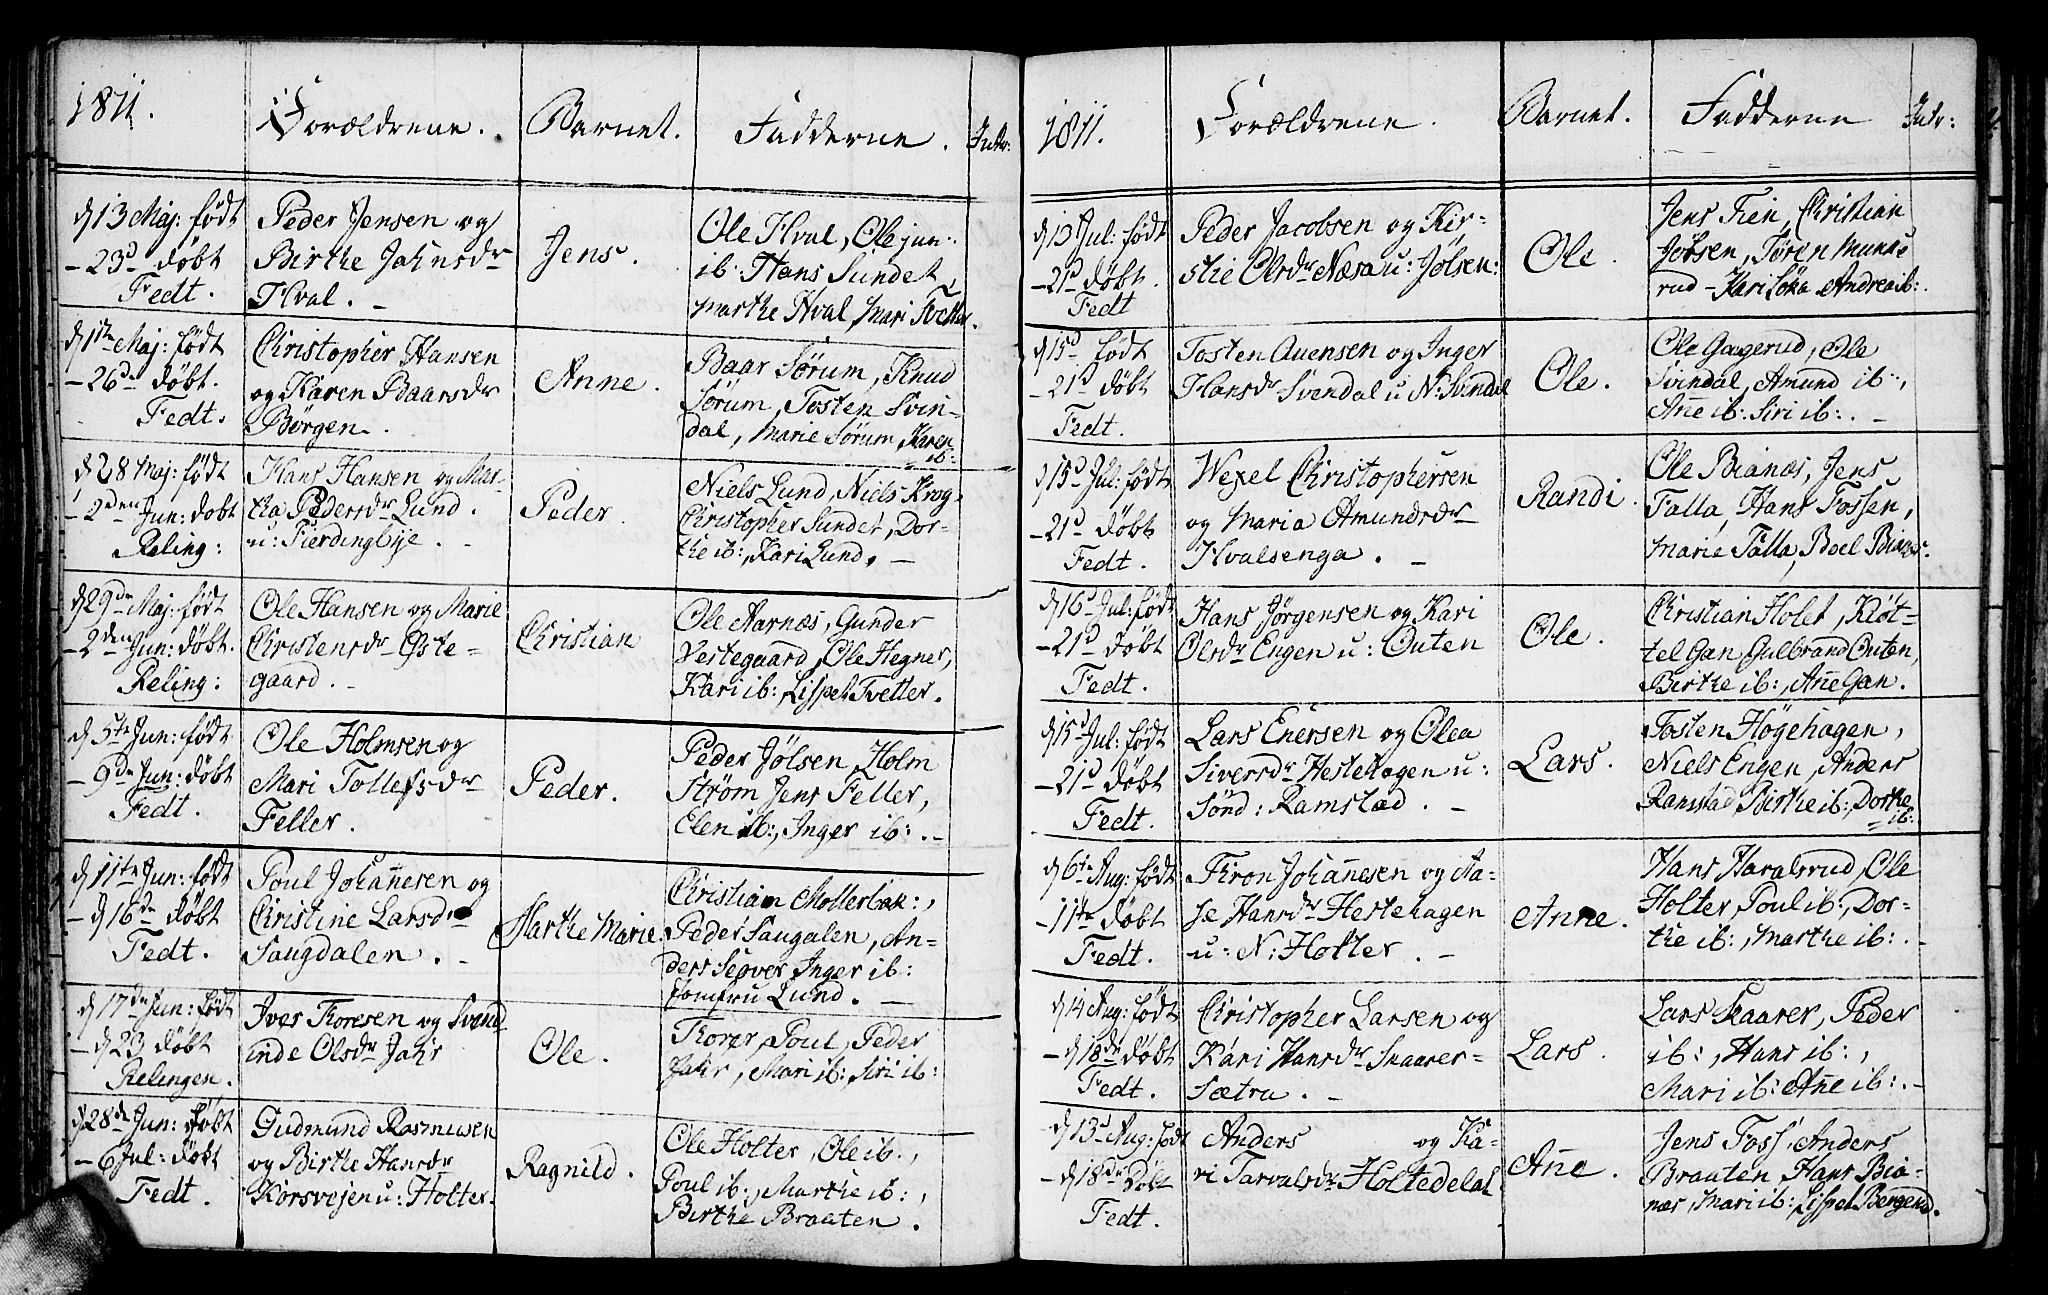 1811.
Forældrene.
Barnet.
Fadderne.
Intr:
d 13 Maj: født
- 23d døbt
Fedt.
Peder Jensen og
Birthe Jahnsdr
Hval. -
Jens.
Ole Hval, Ole jun:
ib: Hans Sundet,
Marthe Hval, Mari Tvetter.
Maj: født
- 26de døbt.
Fedt.
Christopher Hansen
og Karen Baarsdr
Børgen.
Anne.
Baar Sørum, Knud
Sørum, Tosten Svin-
dal, Marie Sørum, Karen
ib:
d 28 Maj: født
- 2den Jun: døbt
Reling:
Hans Hansen og Mar-
tha Pedersdr Lund.
u: Fierdingbye. -
Peder.
Niels Lund, Niels Krog,
Christopher Sundet, Dor-
the ib:, Kari Lund. -
d 29de Maj: født
- 2den Jun: døbt.
Reling:
Ole Hansen og Marie
Christensdr Øste-
gaard. -
Christian
Ole Aarnæs, Gunder
Vestegaard, Ole Hegner,
Kari ib:, Lispet Tvetter.
d 5te Jun: født
- 9de Jun: døbt
Fedt.
Ole Holmsen og
Mari Tollefsdr
Feller.
Peder.
Peder Jølsen, Holm
Strøm, Jens Feller,
Elen ib:, Inger ib: . -
d 11te Jun: født
- d 16de døbt
Fedt.
Poul Johañesen og
Christine Larsdr
Saugdalen. -
Marthe Marie.
Christian Mollerbak:,
Peder Saugalen, An-
ders Seøver, Inger ib:
Jomfru Lund. -
d 17de Jun: født
- d 23 døbt
Relingen.
Iver Thoresen og Svend
inde Olsdr Jahr
Ole.
Thorer, Poul, Peder
Jahr, Mari ib: Siri ib:
d 28de Jun: født
- 6 Jul: døbt
Fedt.
Gudmund Rasmusen
og Birthe Hansdr
Korsvejen u: Holter.
Ragnild.
Ole Holter, Ole ib.,
Poul ib:, Marthe ib:,
Birthe Braaten.
1811.
Forældrene.
Barnet.
Fadderne
Intr:
d 13 Jul: født
- 21d døbt.
Fedt
Peder Jacobsen og Kir-
stie Olsdr Næsa u: Jølsen:
Ole.
Jens Tien, Christian
Jølsen, Søren Munke
rud - Kari Løka Andrea ib:
d 15d født
- 21d døbt
Fedt.
Tosten Auensen og Inger
Hansdr Svendal u N: Svindal
Ole.
Ole Gagerud, Ole
Svindal, Amund ib:,
Añe ib: Siri ib: . -
d 15d Jul: født
- 21d døbt
Fedt.
Wexel Christophersen
og Maria Amundsdr
Hvalsenga. -
Randi.
Ole Bianæs, Jens
Falla, Hans Fossen,
Marie Falla, Boel Bianæs.
d 16d Jul: født
- 21d døbt
Fedt.
Hans Jørgensen og Kari
Olsdr Engen u: Outen
Ole.
Christian Holet, Kløt-
tel Gan, Gulbrand Outen,
Birthe ib:, Añe Gan.
d 15d Jul: født
- 21d døbt
Fedt.
Lars Enersen og Olea
Siversdr Hestehagen u:
Sønd: Ramstad. -
Lars.
Tosten Høgehagen,
Niels Engen, Anders
Ramstad, Birthe ib:, Dorthe
ib:
d 6te Aug: født
- 11te døbt
Fedt.
Thron Johañesen og Aa-
se Hansdr Hestehagen
u: N: Holter. -
Anne.
Hans Haralsrud, Ole
Holter, Poul ib:, Dor-
the ib:, Marthe ib: . -
d 14 Aug: født
- d 18de døbt
Fedt.
Christopher Larsen og
Kari Hansdr Skaarer-
Sætra. -
Lars.
Lars Skaarer, Peder
ib:, Hans ib:,
Mari ib: Añe ib: . -
d 13d Aug: født
- d 18de Døbt
Fedt.
Anders og Ka-
ri Tarvalsdr Holtedelal
Añe.
Jens Foss, Anders
Braaten, Hans Bia-
næs, Mari ib: Lispet Bergerud.